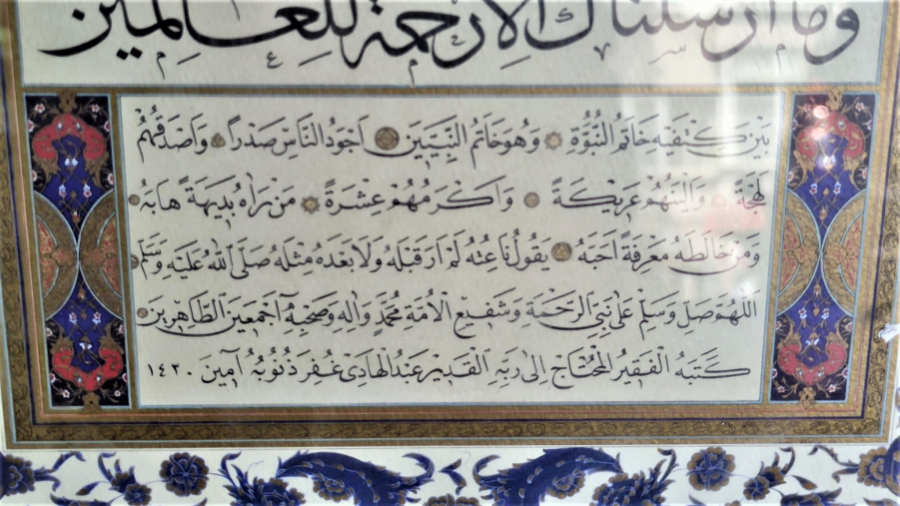 وما أرسلناك إلا رحمة للعالمين
بين كتفيه خاتم النبوة وهو خاتم النبيين اجود الناس صدرا واصدقهم
لهجة والينهم عريكة واكرمهم عشرة من رآه بديهة هابه
ومن خالطه معرفة احبه يقول ناعته لم ار قبله ولا بعده مثله صلى الله عليه وسلم
اللهم صل وسلم على نبي الرحمة وشفيع الأمة محمد وآله وصحبه أجمعين الطاهرين
كتبه الفقير المحتاج إلى ربه القدير عبد الهادي غفر ذنوبه آمين ١٤٢٠